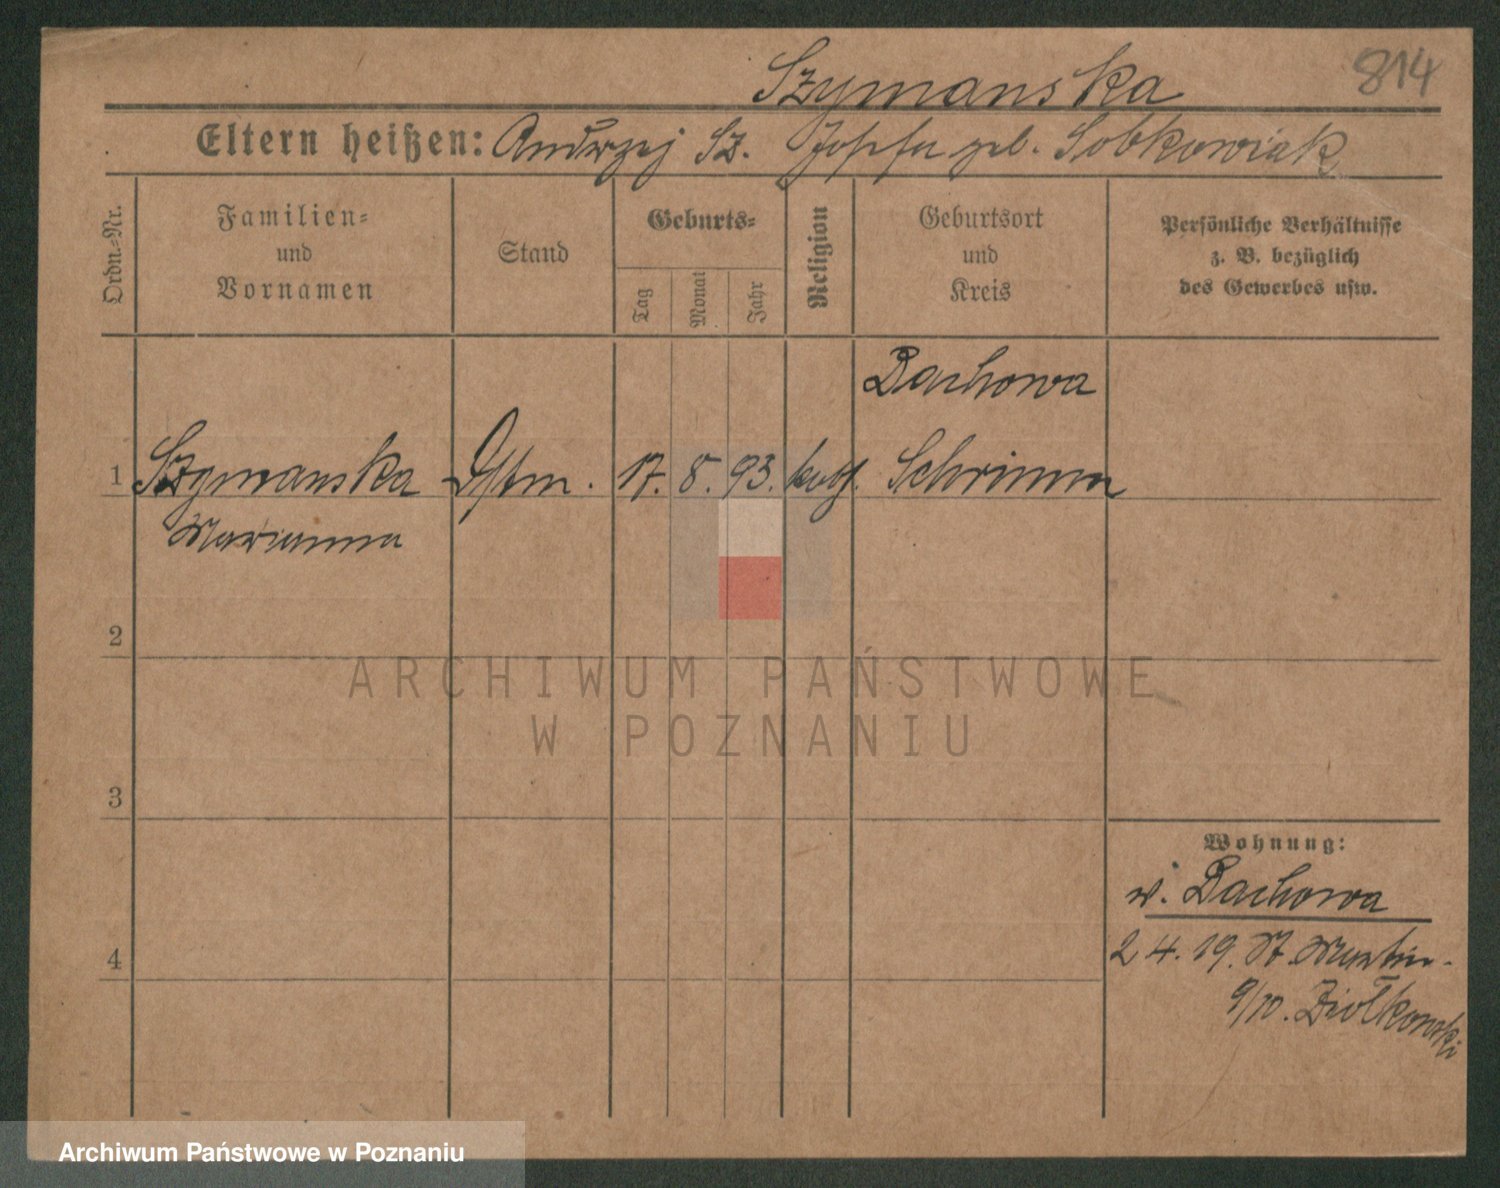 Szymanska 814
Eltern heißen: Andrzej Sz. Jozefa geb. Sobkowiak
Ordn.-Nr.
Familien-
und
Vornamen
Stand
Geburts-
Tag
Monat
Jahr
Religion
Geburtsort
und
Kreis
Persönliche Verhältnisse
z. B. bezüglich
des Gewerbes usw.
Bachowa
1 Szymanska 17. 8. 93. kath. Schrimm
Marianna
2
ARCHIWUM PAŃSTWOWE
W POZNANIU
3
Wohnung:
w. Bachowa
4
2 4. 19. St. Martin-
9/10. Ziołkowski
Archiwum Państwowe w Poznaniu